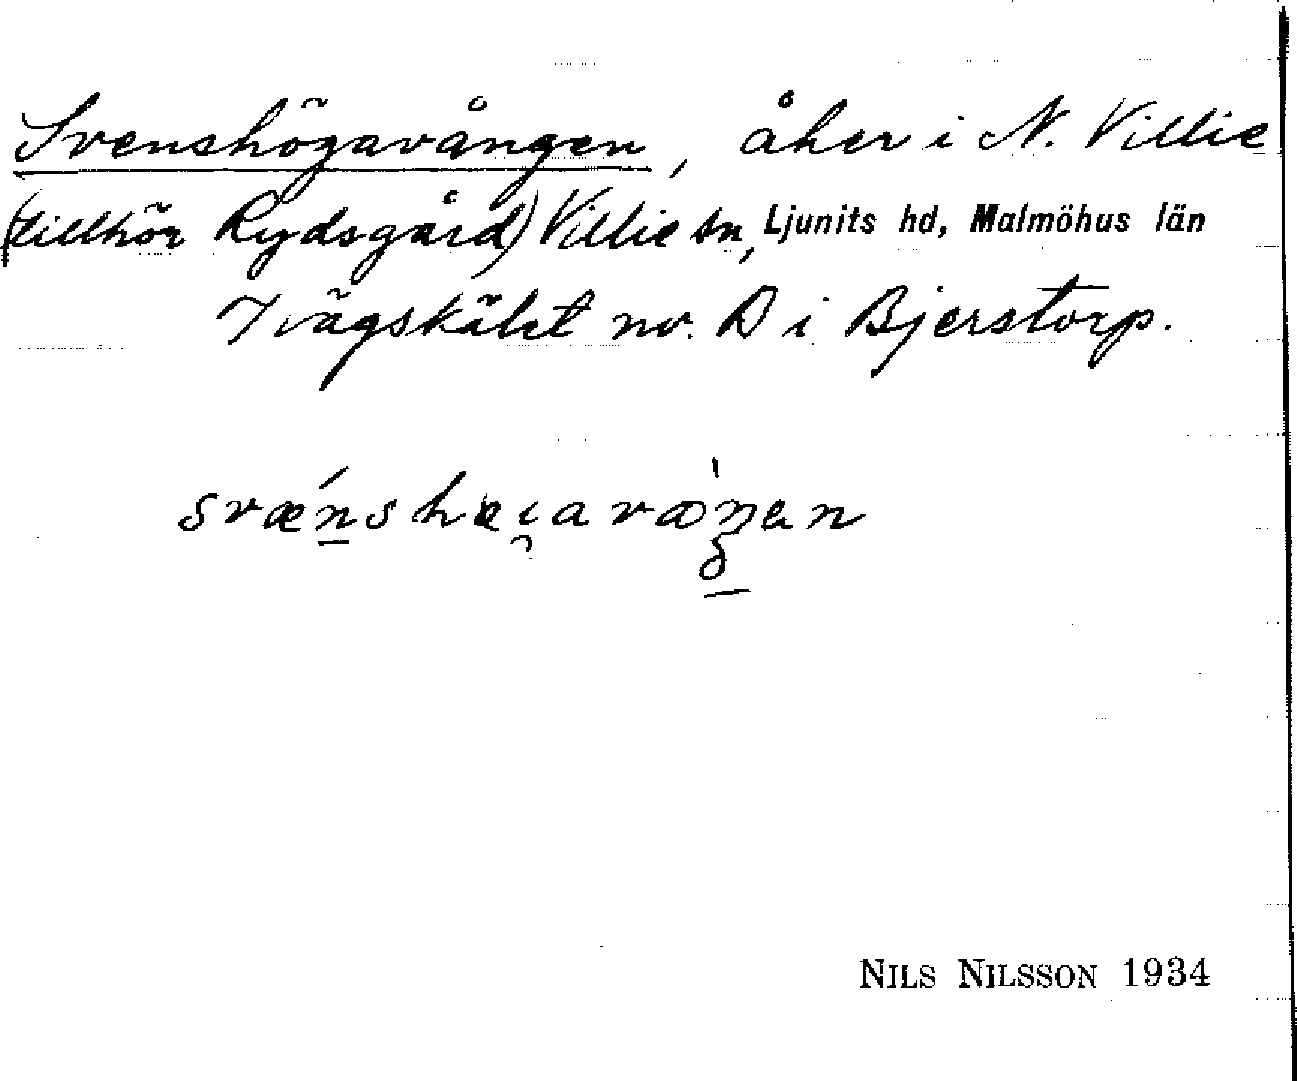 Svenshögavången, åker i N. Villie
(tillhör Rydsgård) Villie sn, Ljunits hd, Malmöhus län
I vägskälet nv. D i Bjerstorp.
svǽnshæi̯avɑŋ̀en
NILS NILSSON 1934